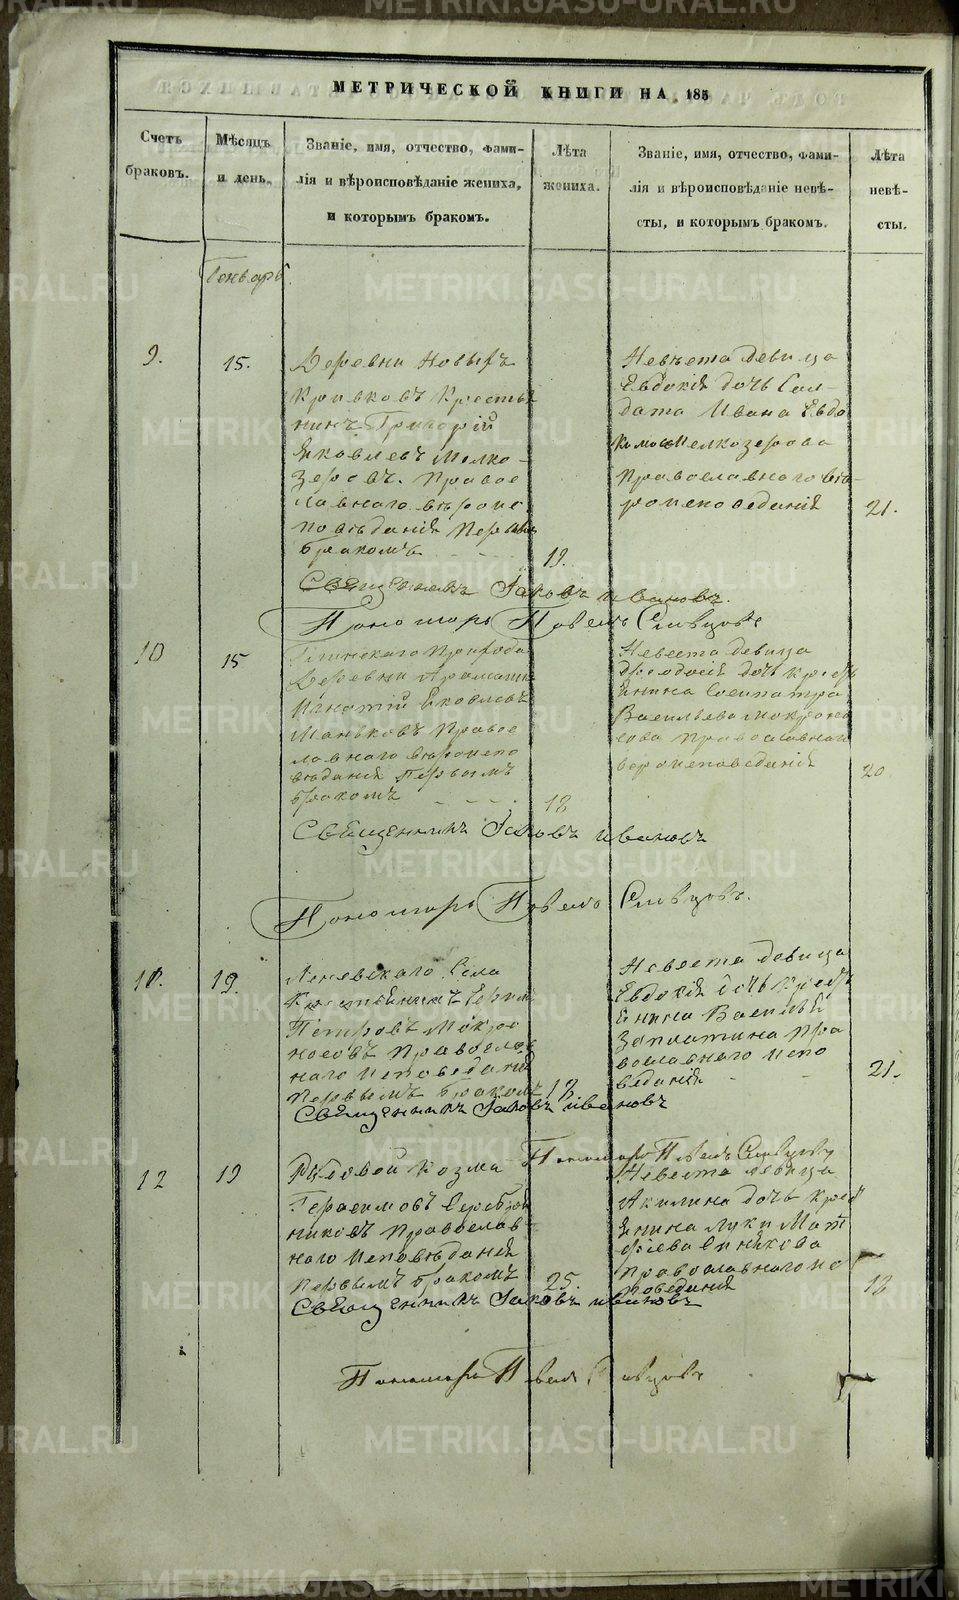 МЕТРИЧЕСКОЙ КНИГИ НА 185
Счетъ браковъ.
Мѣсяцъ и день.
Званіе, имя, отчество, фами-
лія и вѣроисповѣданіе жениха,
и которымъ бракомъ.
Лѣта жениха.
Званіе, имя, отчество, фами-
лія и вѣроисповѣданіе невѣ-
сты, и которымъ бракомъ.
Лѣта невѣ-
сты.
Генварь
9.
15.
Деревни Новыхъ
Кривковъ Кресть
нинъ Григорій
Яковлевъ Мелко-
зеровъ. Правос
лавнаго вѣроис
повѣданія Первымъ
бракомъ
19.
Невѣста девица
Евдокія дочь Сол-
дата Ивана Евдо
кимова Мелкозерова
Православнаго вѣ-
роисповеданія
21.
Священникъ Іаковъ Ивановъ.
Пономарь Павелъ Словцовъ
10
15
Деревни
Игнатій Яковлевъ
Маньковъ Правос
лавнаго вѣроиспо
вѣданія Первымъ
бракомъ
18
Невеста девица
Феодосія дочь крест
янина Сосипатра
Васильева Мокроно
сова Православнаго
вероисповеданія
20
Священникъ Іаковъ Ивановъ
Пономарь Павелъ Словцовъ.
11.
19.
Леневскаго Села
Крестьянинъ
Петровъ Мокро
носовъ Православ
наго исповеданія
Первымъ бракомъ
18
Невеста девица
Евдокія дочь крест
янина Василья
Заплатина Пра
вославнаго испо
веданія
21.
Священникъ Іаковъ Ивановъ
Пономарь Павелъ Словцовъ
12
19
Козма
Герасимовъ Серебря
никовъ Православ
наго исповѣданія
Первымъ бракомъ
25.
Невеста девица
Акилина дочь крест
янина Луки Мат
фіева Синякова
Православнаго ис
поведанія
18
Священникъ Іаковъ Ивановъ
Пономарь Павелъ Словцовъ
METRIKI.GASO-URAL.RU